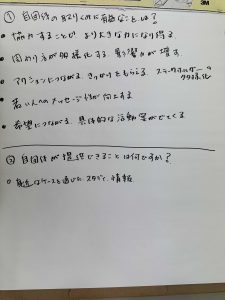 ① 自団体の取りくみに有益なことは?
• 協力することが より大きな力になり得る
• 関わり方が多様化する、影響力が増す
• アクションにつながる、きっかけをもらえる、ステークホルダーの
多様化
• 若い人へのメッセージ性が向上する
• 希望につながる 具体的な活動案がでてくる
② 自団体が提供できることは何ですか?
• 身近なケースを通じた スタディ、情報
3M